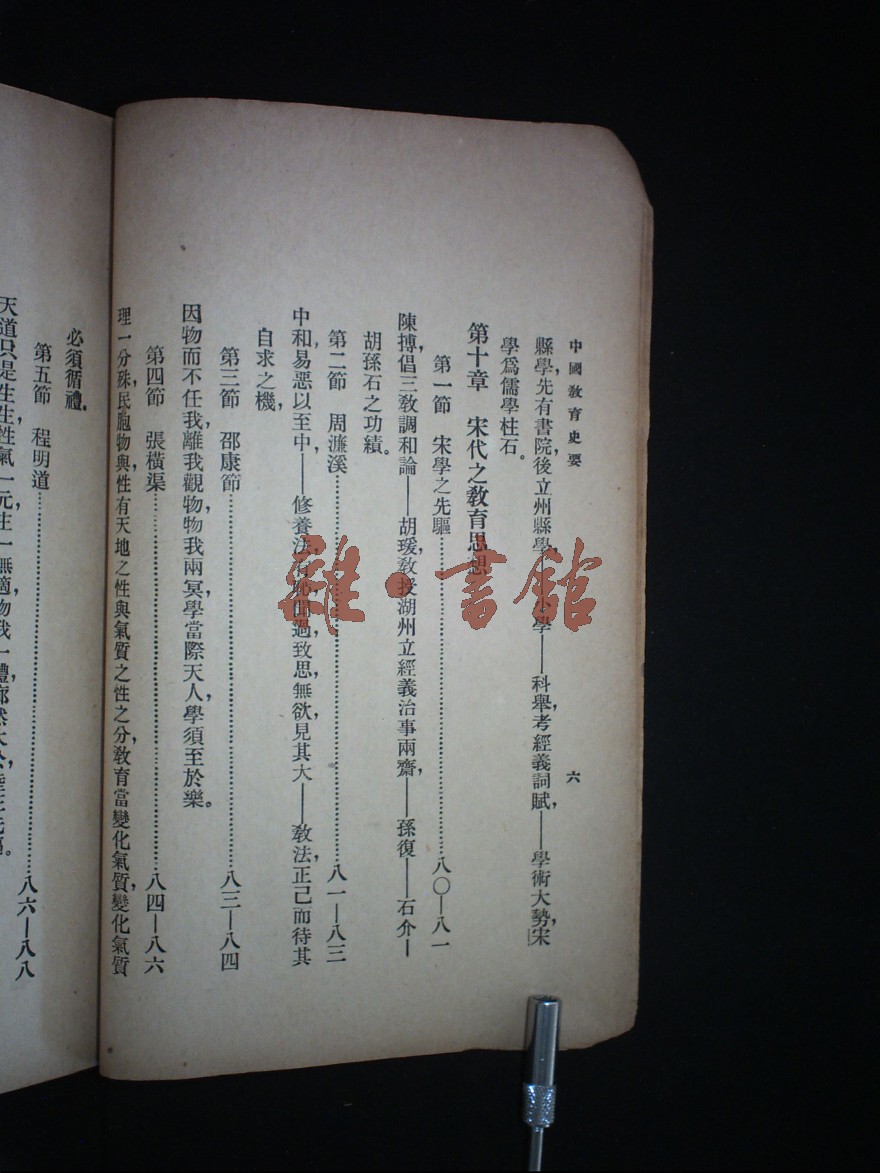 中國教育史要
六
縣學,先有書院,後立州縣學,學——科舉考經義詞賦,——學術大勢,宋
學爲儒學柱石。
第十章　宋代之教育思想
第一節　宋學之先驅……八〇—八一
陳摶倡三教調和論——胡瑗教授湖州立經義治事兩齋,——孫復——石介—
胡孫石之功績。
第二節　周濂溪……八一—八三
中和,易惡以至中——修養法,有恥聞過致思,無欲見其大——教法,正己而待其
自求之機,
第三節　邵康節……八三—八四
因物而不任我,離我觀物,物我兩冥,學當際天人,學須至於樂。
第四節　張橫渠……八四—八六
理一分殊,民胞物與,性有天地之性與氣質之性之分,教育當變化氣質,變化氣質
必須循禮。
第五節　程明道……八六—八八
天道只是生生,性氣一元,生一無適,物我一體,廓然大公,
雜·書館